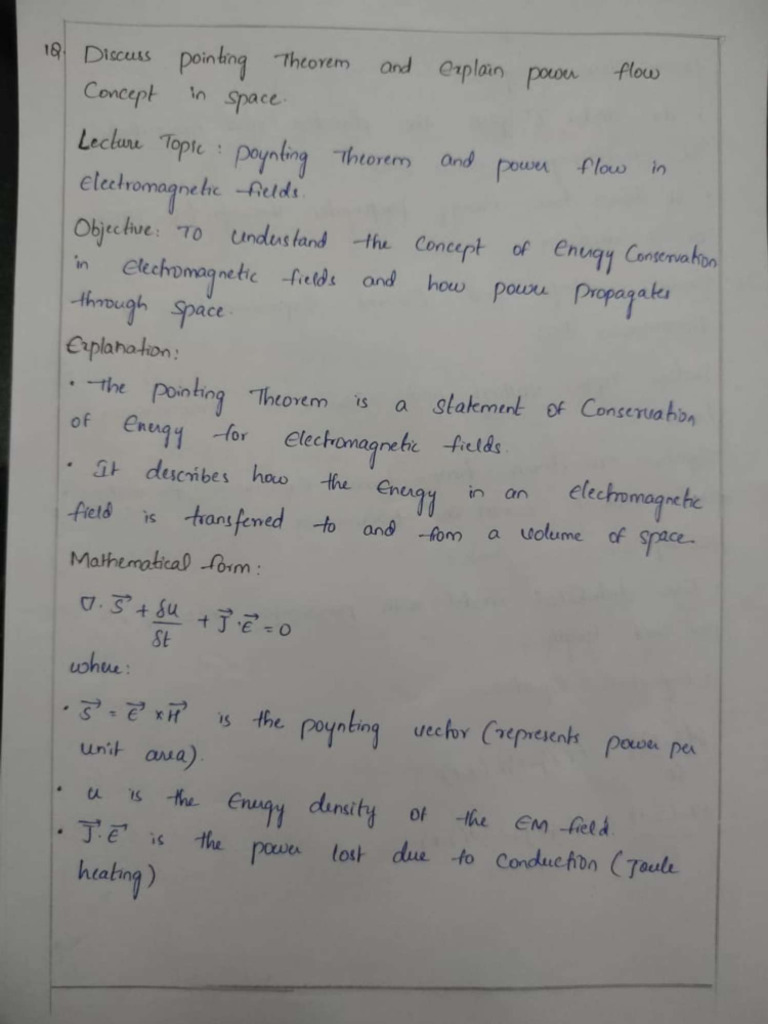 1Q. Discuss pointing Theorem and explain power flow
Concept in space.
Lecture Topic : poynting Theorem and power flow in
Electromagnetic fields.
Objective: To understand the Concept of Energy Conservation
in Electromagnetic fields and how power propagates
through space.
Explanation:
• The pointing Theorem is a statement of Conservation
of Energy for Electromagnetic fields.
• It describes how the Energy in an electromagnetic
field is transferred to and from a volume of space.
Mathematical form:
∇. S⃗ + δu/δt + J⃗.E⃗ = 0
where:
• S⃗ = E⃗ × H⃗ is the poynting vector (represents power per
unit area).
• u is the Energy density of the EM field.
• J⃗.E⃗ is the power lost due to conduction (Joule
heating)